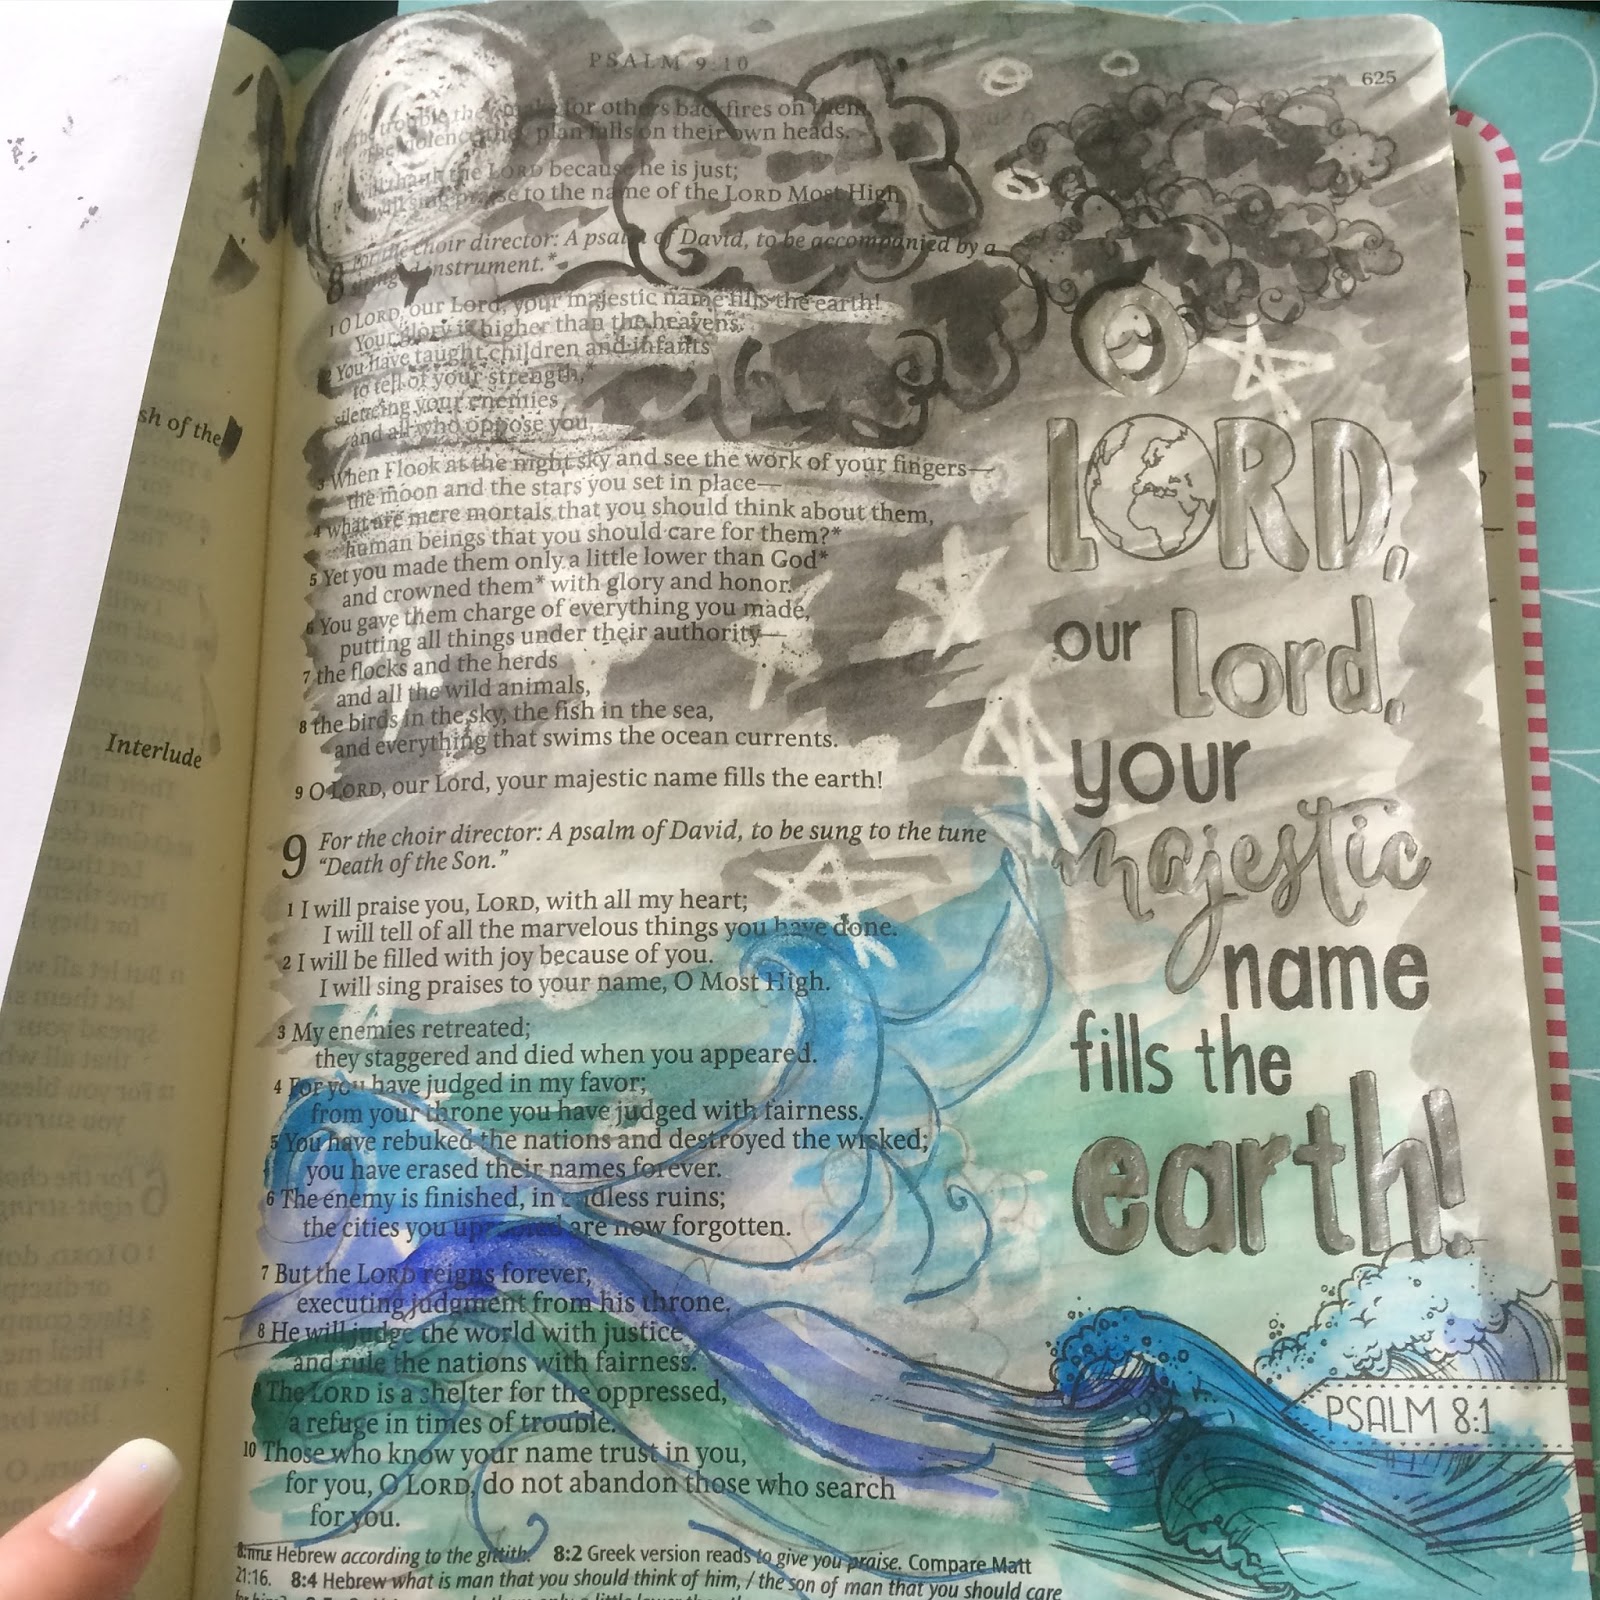 PSALM 9:10
625
the trouble they make for others backfires on them.
The violence they plan falls on their own heads.
17 I will thank the LORD because he is just;
I will sing praise to the name of the LORD Most High.
8 For the choir director: A psalm of David, to be accompanied by a
stringed instrument.*
1 O LORD, our Lord, your majestic name fills the earth!
Your glory is higher than the heavens.
2 You have taught children and infants
to tell of your strength,*
silencing your enemies
and all who oppose you.
3 When I look at the night sky and see the work of your fingers—
the moon and the stars you set in place—
4 what are mere mortals that you should think about them,
human beings that you should care for them?*
5 Yet you made them only a little lower than God*
and crowned them* with glory and honor.
6 You gave them charge of everything you made,
putting all things under their authority—
7 the flocks and the herds
and all the wild animals,
8 the birds in the sky, the fish in the sea,
and everything that swims the ocean currents.
9 O LORD, our Lord, your majestic name fills the earth!
9 For the choir director: A psalm of David, to be sung to the tune
“Death of the Son.”
1 I will praise you, LORD, with all my heart;
I will tell of all the marvelous things you have done.
2 I will be filled with joy because of you.
I will sing praises to your name, O Most High.
3 My enemies retreated;
they staggered and died when you appeared.
4 For you have judged in my favor;
from your throne you have judged with fairness.
5 You have rebuked the nations and destroyed the wicked;
you have erased their names forever.
6 The enemy is finished, in endless ruins;
the cities you uprooted are now forgotten.
7 But the LORD reigns forever,
executing judgment from his throne.
8 He will judge the world with justice
and rule the nations with fairness.
9 The LORD is a shelter for the oppressed,
a refuge in times of trouble.
10 Those who know your name trust in you,
for you, O LORD, do not abandon those who search
for you.
8:TITLE Hebrew according to the gittith. 8:2 Greek version reads to give you praise. Compare Matt
21:16. 8:4 Hebrew what is man that you should think of him, / the son of man that you should care
O
LORD,
our Lord,
your
majestic
name
fills the
earth!
PSALM 8:1
sh of the
Interlude